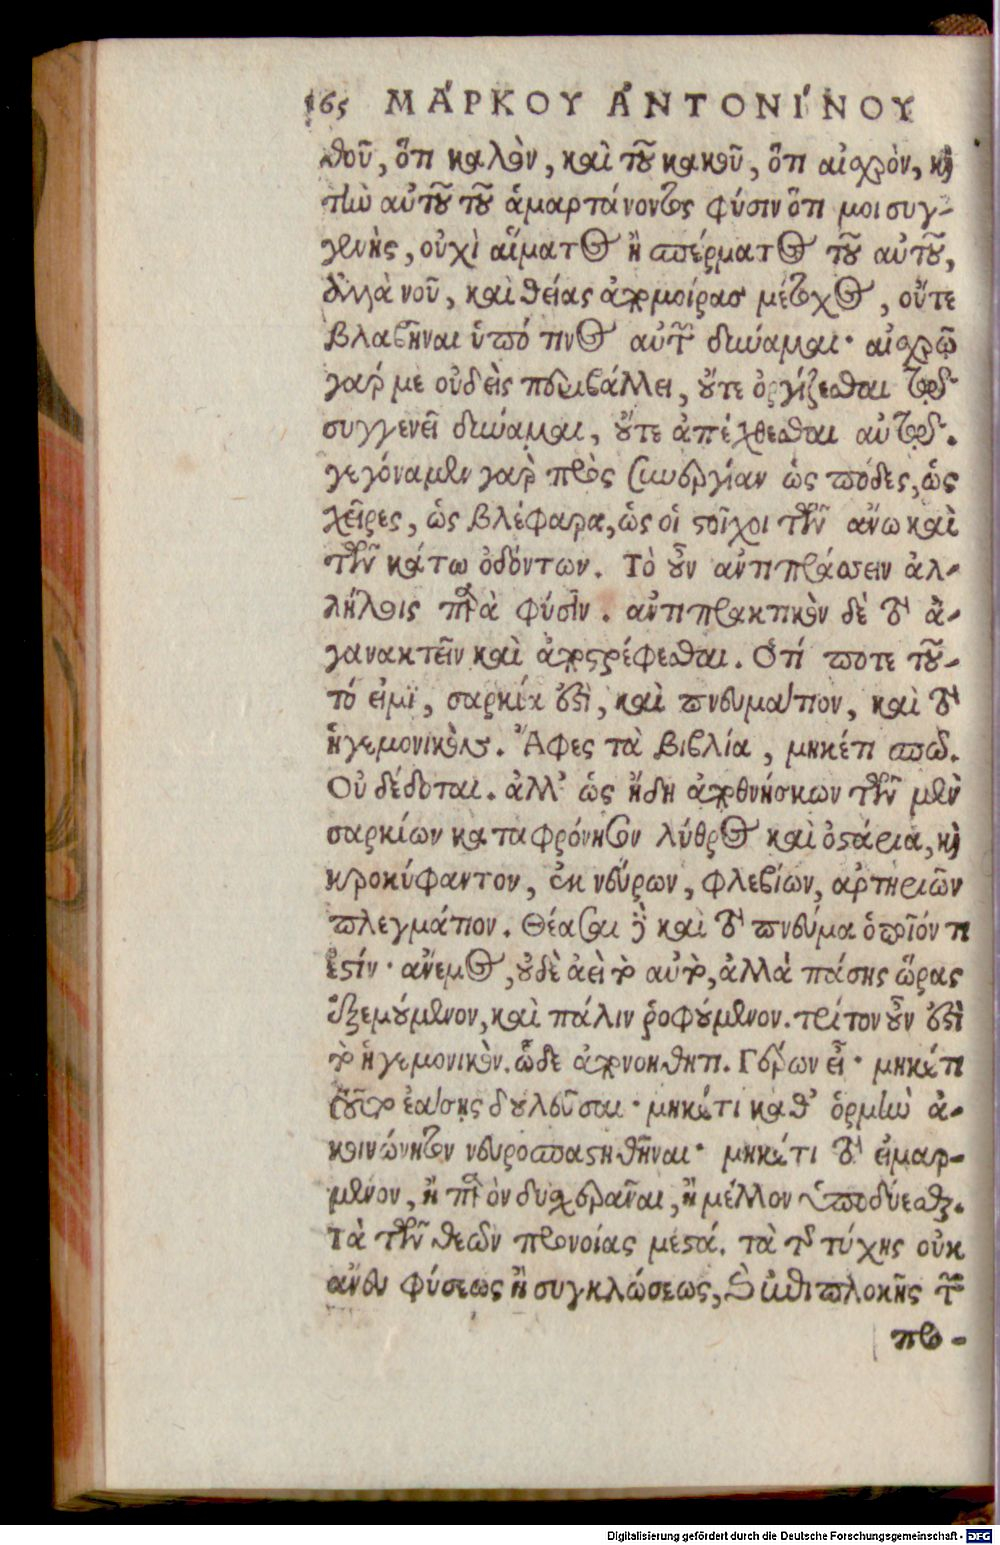 165 ΜΆΡΚΟΥ ἈΝΤΟΝΊΝΟΥ
θοῦ, ὅτι καλὸν, καὶ τοῦ κακοῦ, ὅτι αἰσχρὸν, καὶ
τὴν αὐτοῦ τοῦ ἁμαρτάνοντος φύσιν ὅτι μοι συγ-
γενὴς, οὐχὶ αἵματος ἢ σπέρματος τοῦ αὐτοῦ,
ἀλλὰ νοῦ, καὶ θείας ἀπομοίρας μέτοχος, οὔτε
βλαβῆναι ὑπό τινος αὐτῶν δύναμαι· αἰσχρῷ
γάρ με οὐδεὶς περιβάλλει, οὔτε ὀργίζεσθαι τῷ
συγγενεῖ δύναμαι, οὔτε ἀπέχθεσθαι αὐτῷ.
γεγόναμεν γὰρ πρὸς συνεργίαν ὡς πόδες, ὡς
χεῖρες, ὡς βλέφαρα, ὡς οἱ στοῖχοι τῶν ἄνω καὶ
τῶν κάτω ὀδόντων. Τὸ οὖν ἀντιπράσσειν ἀλ-
λήλοις παρὰ φύσιν. ἀντιπρακτικὸν δὲ τὸ ἀ-
γανακτεῖν καὶ ἀποστρέφεσθαι. Ὅτί ποτε τοῦ-
τό εἰμι, σαρκία ἐστὶ, καὶ πνευμάτιον, καὶ τὸ
ἡγεμονικόν. Ἄφες τὰ βιβλία, μηκέτι σπῶ.
Οὐ δέδοται. ἀλλ' ὡς ἤδη ἀποθνήσκων τῶν μὲν
σαρκίων καταφρόνησον λύθρος καὶ ὀστάρια, καὶ
κροκύφαντον, ἐκ νεύρων, φλεβίων, ἀρτηριῶν
πλεγμάτιον. Θέασαι δὲ καὶ τὸ πνεῦμα ὁποῖόν τι
ἐστίν· ἄνεμος, οὐδὲ ἀεὶ τὸ αὐτὸ, ἀλλὰ πάσης ὥρας
ἐξεμούμενον, καὶ πάλιν ῥοφούμενον. τρίτον οὖν ἐστὶ
τὸ ἡγεμονικὸν. ὧδε ἀπονοήθητι. Γέρων εἶ· μηκέτι
τοῦτο ἐάσῃς δουλεῦσαι· μηκέτι καθ' ὁρμὴν ἀ-
κοινώνητον νευροσπαστηθῆναι· μηκέτι τὸ εἱμαρ-
μένον, ἢ παρὸν δυσχερᾶναι, ἢ μέλλον ὑποδύεσθαι.
Τὰ τῶν θεῶν προνοίας μεστά. τὰ τῆς τύχης οὐκ
ἄνευ φύσεως ἢ συγκλώσεως, καὶ ἐπιπλοκῆς τῶν
προ-
Digitalisierung gefördert durch die Deutsche Forschungsgemeinschaft - DFG